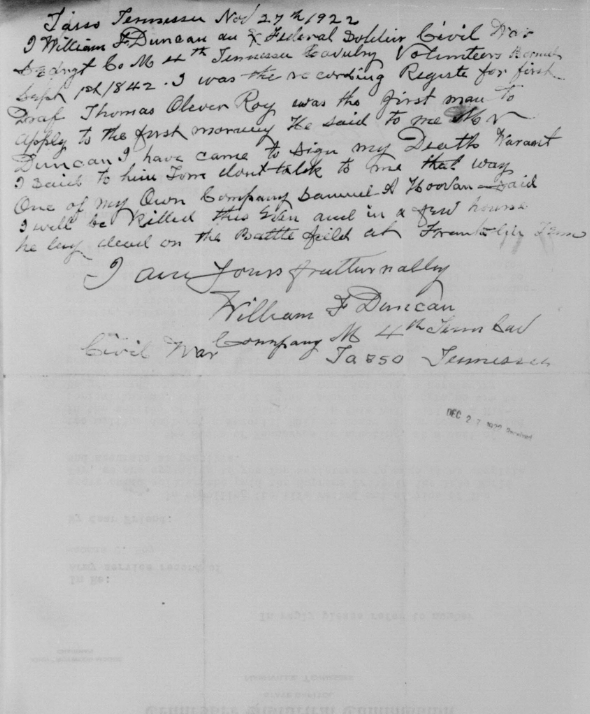 Tasso Tennessee Nov 27th 1922
I William F Duncan an Ex Federal Soldier Civil War
Co M 4th Tennessee Cavalry Volunteers Born
Sept 1st 1842. I was the recording Registe for first
Draf Thomas Oliver Roy was the first man to
apply to the first morning He said to me Mr
Duncan I have came to sign my Deaths Warant
I said to him Tom dont talk to me that way
One of my Own Company Samuel A said
I will be killed this Even and in a few hours
he lay dead on the Battle feild at Tenn
I am Yours fratturnalby
William F Duncan
Company M 4th Tenn Cav
Civil War Tasso Tennessee
DEC 27 1922